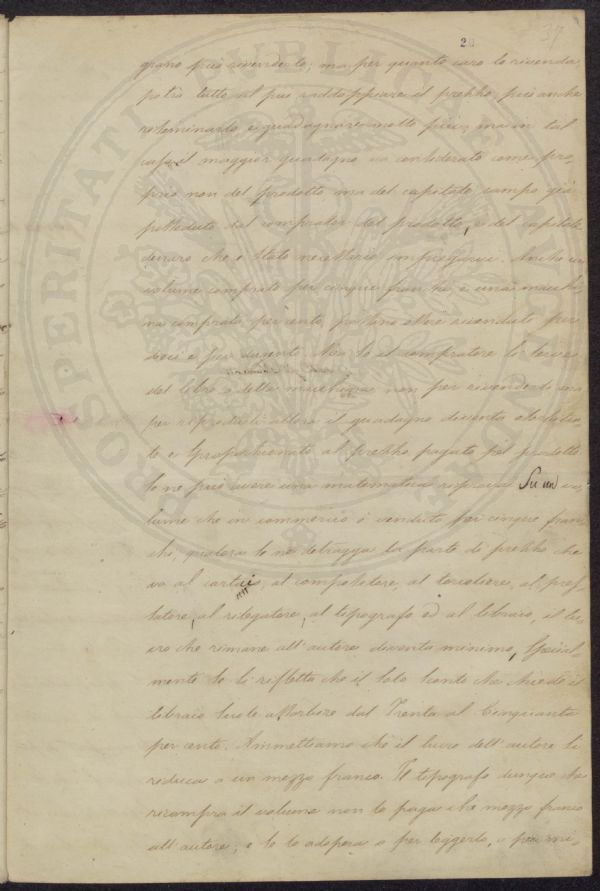 37
20
grano può rivenderlo; ma per quanto caro lo rivenda,
potrà tutto al più raddoppiare il prezzo, può anche
riseminarlo e guadagnare molto più; ma in tal
caso il maggior guadagno va considerato come pro,
prio non del prodotto ma del capitale campo già
posseduto dal comprator del prodotto, o del capitale
denaro che è stato necessario impiegarvi. Anche un
volume comprato per cinque franchi, e una macchi,
na comprata per cento, possono essere rivenduti per
dieci e per dugento. Ma se il compratore si serve
del libro o della macchina non per rivenderla ma
per riprodurli allora il guadagno diventa
to e sproporzionato al prezzo pagato pel prodotto.
Se ne può avere una matematica riprova. Su un vo,
lume che in commercio è venduto per cinque fran,
chi, qualora se ne detragga la parte di prezzo che
va al cartaio, al compositore, al torcoliere, al pres,
satore, al rilegatore, al tipografo ed al libraio, il lu,
cro che rimane all'autore diventa minimo, spécial
mente se si rifletta che il solo sconto che chiede il
libraio suole assorbire dal Trenta al Cinquanta
per cento. Ammettiamo che il lucro dell'autore si
reduca a un mezzo franco. Il tipografo dunque che
ricompra il volume non lo paga che mezzo franco
all'autore; e se lo adopera o per leggerlo, o per ri,